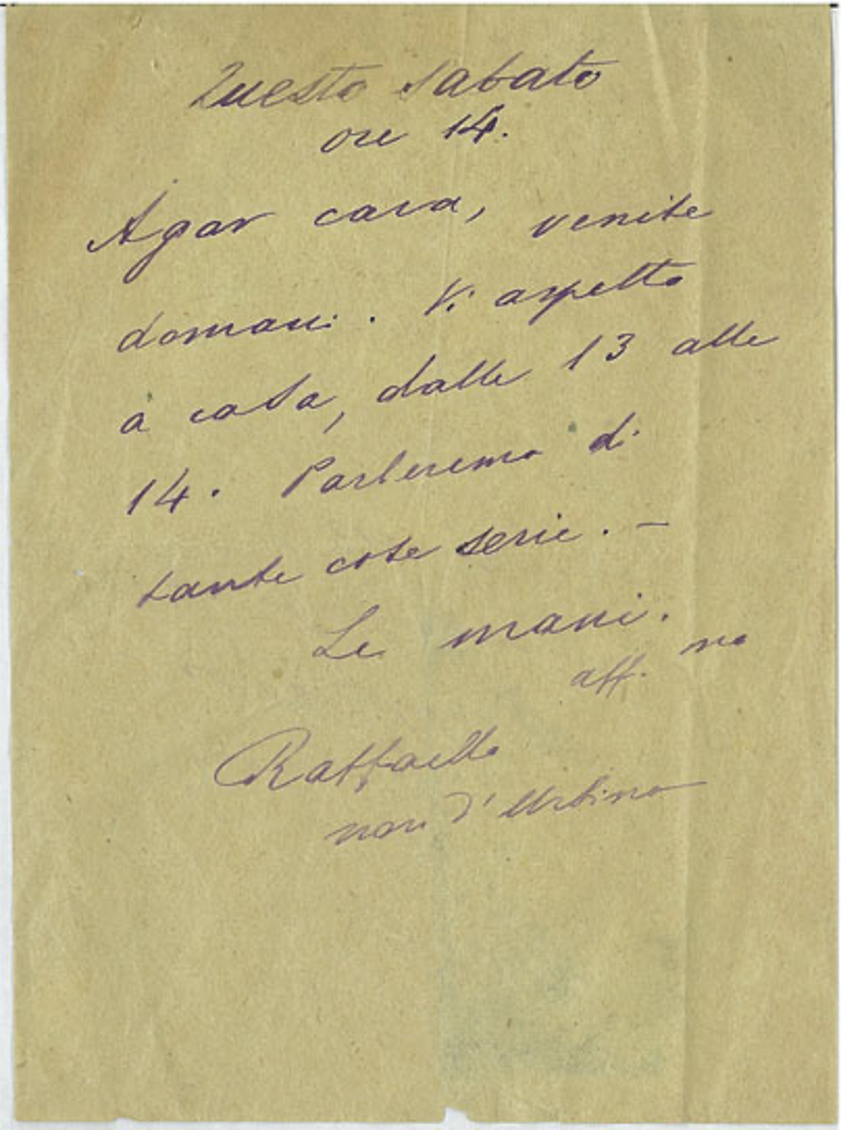 Questo sabato
ore 14.
Agar cara, venite
domani. Vi aspetto
a casa, dalle 13 alle
14. Parleremo di
tante cose serie. —
Le mani.
aff. mo
Raffaello
non d'Urbino